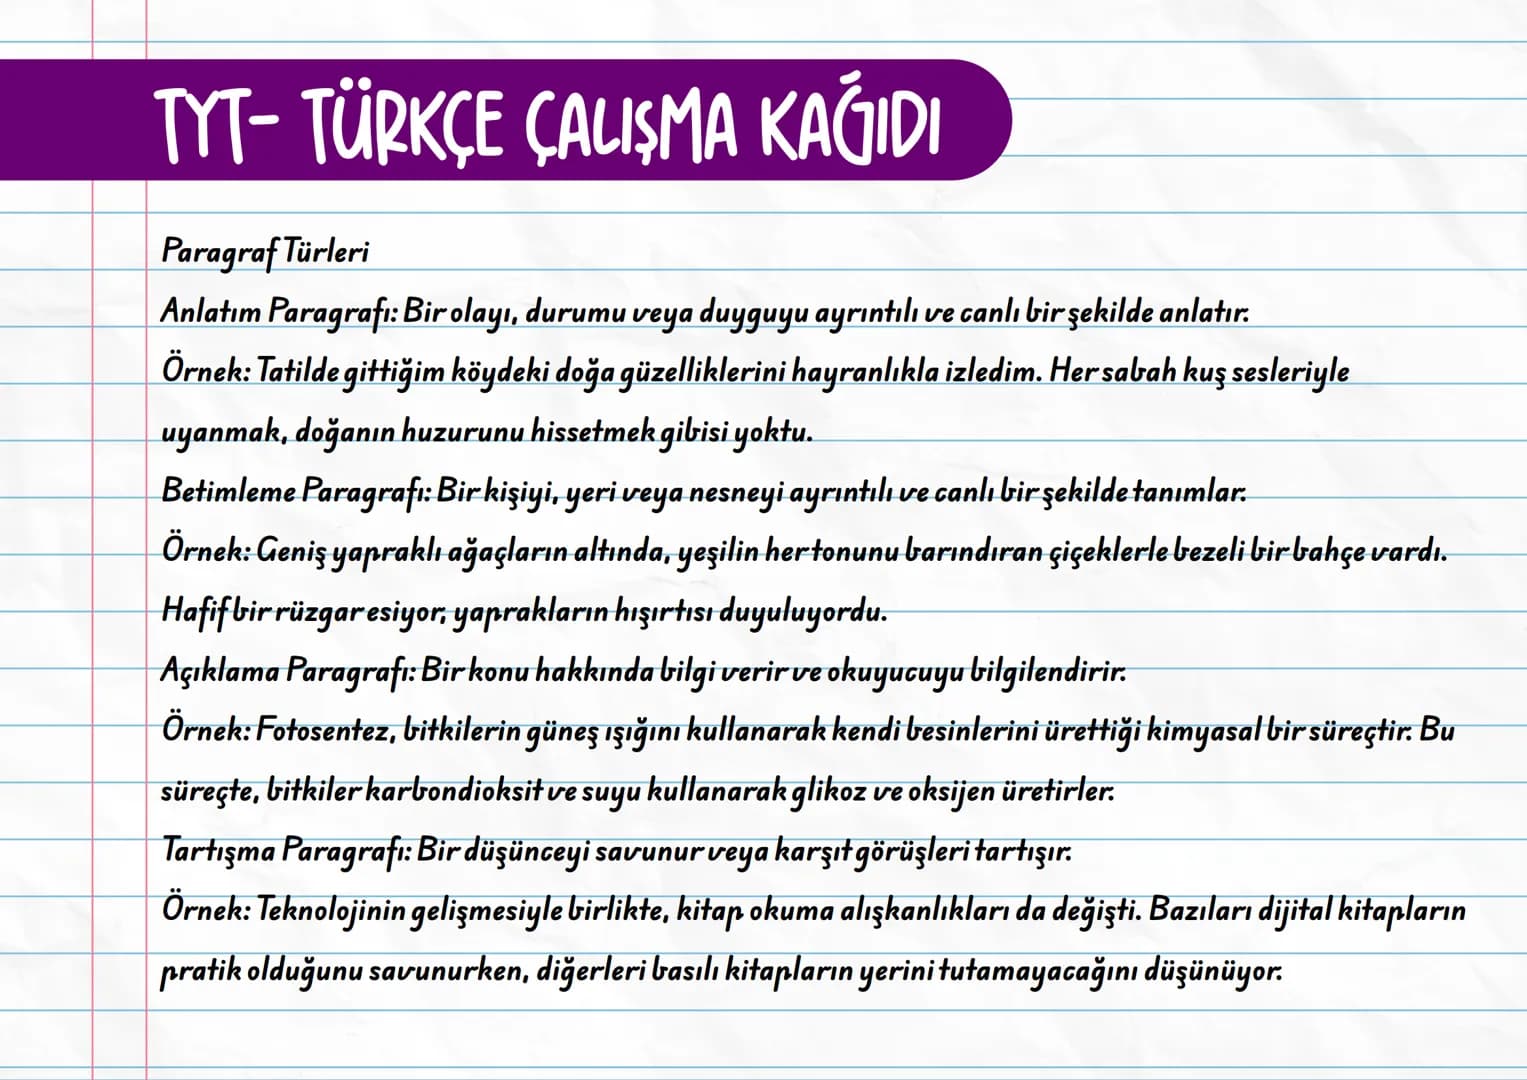 TYT- TÜRKÇE ÇALIŞMA KAĞIDI
Paragraf Türleri
Anlatım Paragrafı: Bir olayı, durumu veya duyguyu ayrıntılı ve canlı bir şekilde anlatır.
Örnek: Tatilde gittiğim köydeki doğa güzelliklerini hayranlıkla izledim. Her sabah kuş sesleriyle
uyanmak, doğanın huzurunu hissetmek gibisi yoktu.
Betimleme Paragrafı: Bir kişiyi, yeri veya nesneyi ayrıntılı ve canlı bir şekilde tanımlar.
Örnek: Geniş yapraklı ağaçların altında, yeşilin her tonunu barındıran çiçeklerle bezeli bir bahçe vardı.
Hafif bir rüzgar esiyor, yaprakların hışırtısı duyuluyordu.
Açıklama Paragrafı: Bir konu hakkında bilgi verir ve okuyucuyu bilgilendirir.
Örnek: Fotosentez, bitkilerin güneş ışığını kullanarak kendi besinlerini ürettiği kimyasal bir süreçtir. Bu
süreçte, bitkiler karbondioksit ve suyu kullanarak glikoz ve oksijen üretirler.
Tartışma Paragrafı: Bir düşünceyi savunur veya karşıt görüşleri tartışır.
Örnek: Teknolojinin gelişmesiyle birlikte, kitap okuma alışkanlıkları da değişti. Bazıları dijital kitapların
pratik olduğunu savunurken, diğerleri basılı kitapların yerini tutamayacağını düşünüyor.